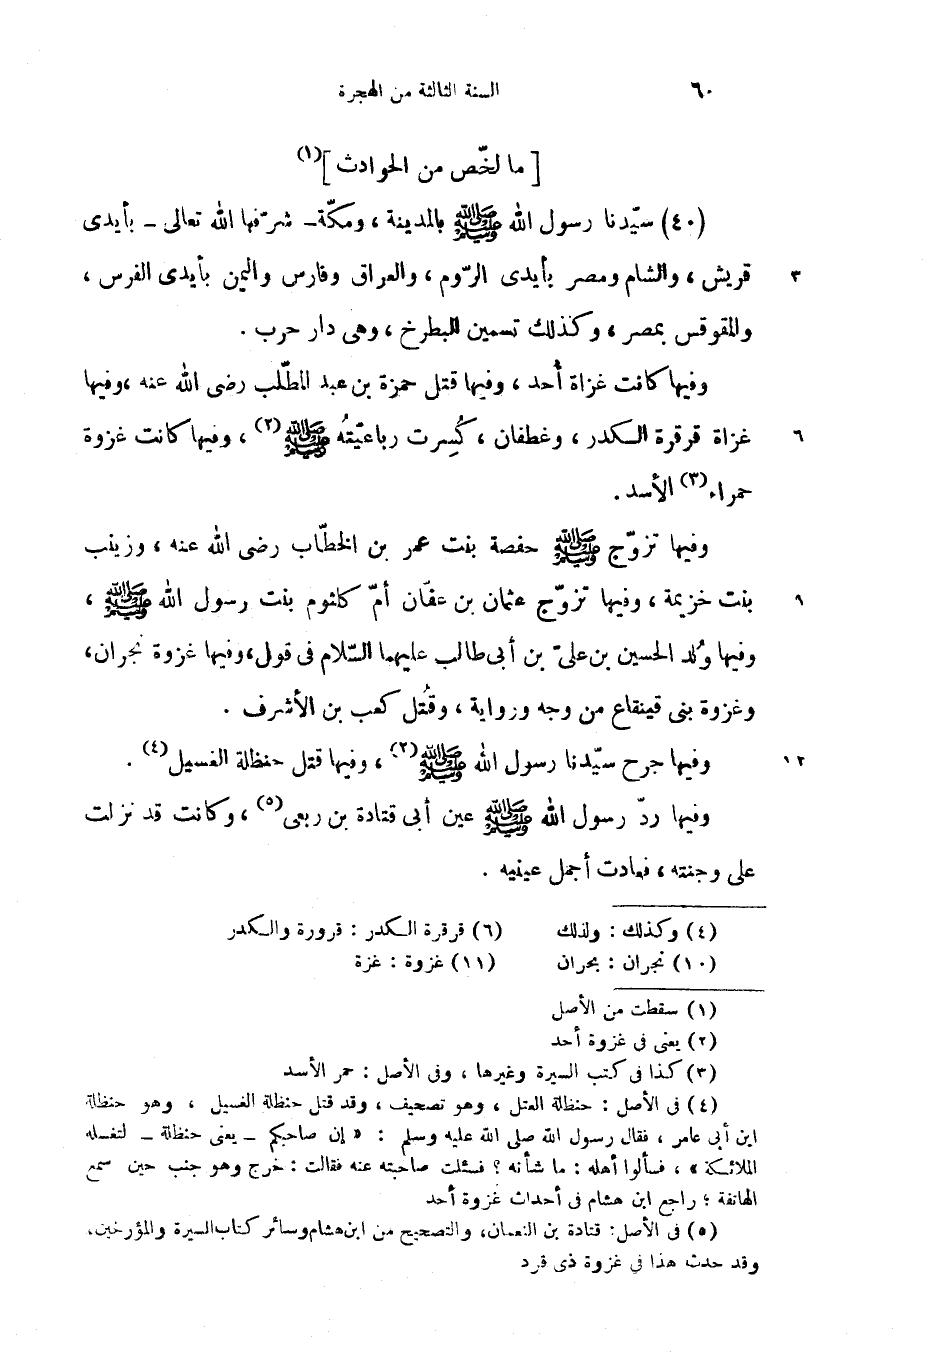 ٦٠ السنة الثالثة من الهجرة
[ ما لخّص من الحوادث ](١)
(٤٠) سيّدنا رسول الله ﷺ بالمدينة ، ومكّة – شرّفها الله تعالى – بأيدى
٣ قريش ، والشام ومصر بأيدى الرّوم ، والعراق وفارس واليمن بأيدى الفرس ،
والمقوقس بمصر ، وكذلك تسمين البطرخ ، وهى دار حرب .
وفيها كانت غزاة أُحد ، وفيها قتل حمزة بن عبد المطّلب رضى الله عنه ، وفيها
٦ غزاة قرقرة الكدر ، وغطفان ، كُسِرت رباعيّتهُ ﷺ(٢) ، وفيها كانت غزوة
حمراء(٣) الأسد .
وفيها تزوّج ﷺ حفصة بنت عمر بن الخطّاب رضى الله عنه ، وزينب
٩ بنت خزيمة ، وفيها تزوّج عثمان بن عفّان أمّ كلثوم بنت رسول الله ﷺ ،
وفيها وُلد الحسين بن علىّ بن أبى طالب عليهما السّلام فى قول ، وفيها غزوة نجران ،
وغزوة بنى قينقاع من وجه ورواية ، وقُتل كعب بن الأشرف .
١٢ وفيها جرح سيّدنا رسول الله ﷺ(٢) ، وفيها قتل حنظلة الغسيل(٤) .
وفيها ردّ رسول الله ﷺ عين أبى قتادة بن ربعى(٥) ، وكانت قد نزلت
على وجنته ، فعادت أجمل عينيه .
(٤) وكذلك : ولذلك (٦) قرقرة الكدر : قرورة والكدر
(١٠) نجران : بحران (١١) غزوة : غزة
(١) سقطت من الأصل
(٢) يعنى فى غزوة أحد
(٣) كذا فى كتب السيرة وغيرها ، وفى الأصل : حمر الأسد
(٤) فى الأصل : حنظلة العتل ، وهو تصحيف ، وقد قتل حنظلة الغسيل ، وهو حنظلة
ابن أبى عامر ، فقال رسول الله صلى الله عليه وسلم : « إن صاحبكم – يعنى حنظلة – لتغسله
الملائكة » ، فسألوا أهله : ما شأنه ؟ فسئلت صاحبته عنه فقالت : خرج وهو جنب حين سمع
الهاتفة ؛ راجع ابن هشام فى أحداث غزوة أحد
(٥) فى الأصل : قتادة بن النعمان ، والتصحيح من ابن هشام وسائر كتاب السيرة والمؤرخين ،
وقد حدث هذا فى غزوة ذى قرد